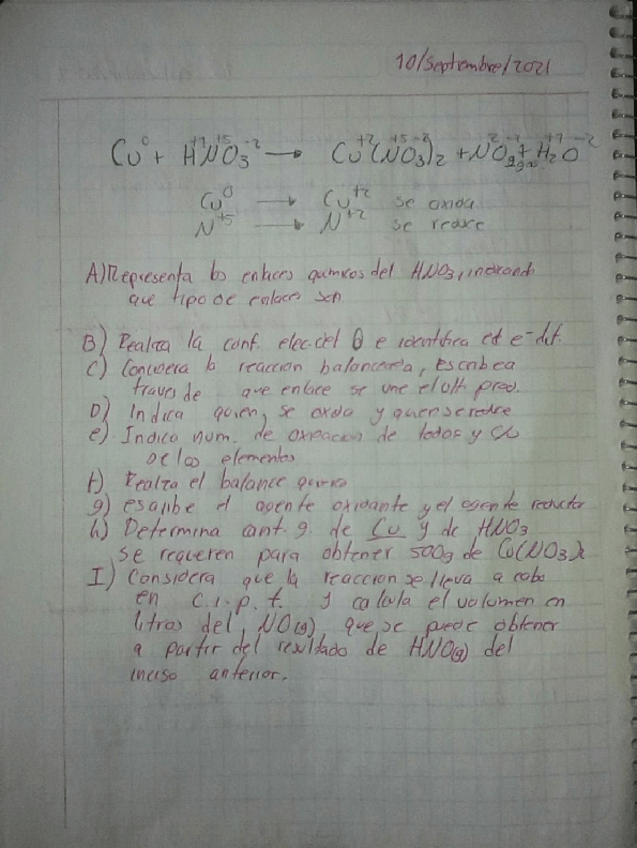 10/septiembre/2021
Cu⁰ + H⁺¹N⁺⁵O₃⁻² → Cu⁺²(N⁺⁵O₃⁻²)₂ + N²O⁻² + H₂⁺¹O⁻²
Cu⁰ → Cu⁺² se oxida
N⁺⁵ → N⁺² se reduce
A) Representa los enlaces quimicos del HNO₃, indicando
que tipo de enlace son
B) Realiza la conf. elec. del θ e identifica el e- dif.
C) Considera la reaccion balanceada, escribe a
traves de que enlace se une el prod.
D) Indica quien se oxida y quien se reduce
e) Indica num. de oxidacion de todos y c/u
De los elementos
f) Realiza el balance
g) escribe el agente oxidante y el agente reductor
h) Determina cant. g. de Cu y de HNO₃
se requieren para obtener 500g de Cu(NO₃)₂
I) Considera que la reaccion se lleva a cabo
en c.i.p.t. y calcula el volumen en
litros del NO(g) que se puede obtener
a partir del resultado de HNO(g) del
inciso anterior.